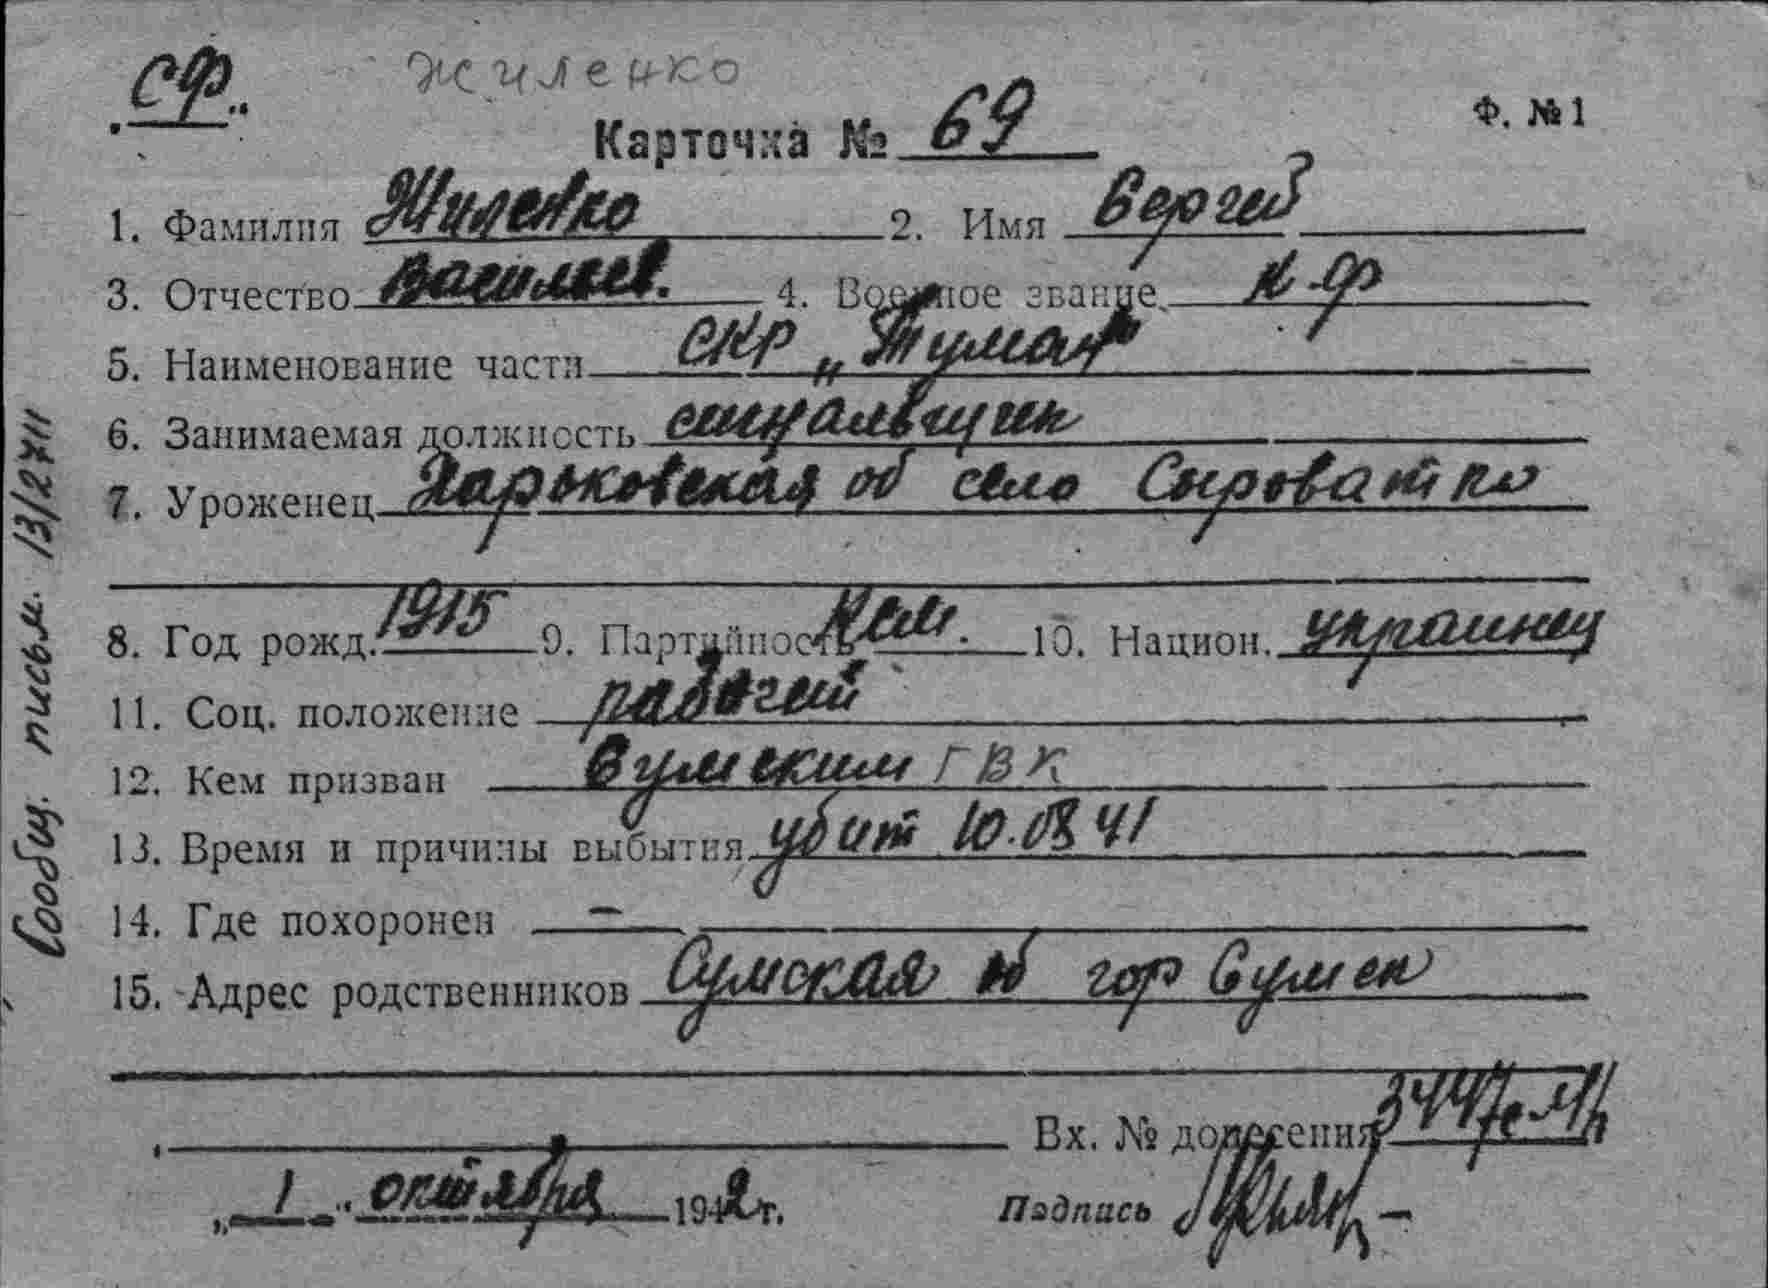 СФ
Жиленко
Ф. №1
Карточка № 69
1. Фамилия Жиленко 2. Имя Сергей
3. Отчество Васильев. 4. Военное звание К-ф
5. Наименование части СКР „Туман"
6. Занимаемая должность сигнальщик
7. Уроженец Харьковская об село Сыроватко
8. Год рожд. 1915 9. Партийность 10. Национ. украинец
11. Соц. положение рабочий
12. Кем призван Сумским ГВК
13. Время и причины выбытия убит 10.08 41
14. Где похоронен —
15. Адрес родственников Сумская об гор Сумек
Вх. № донесения 3447
„ 1 " октября 1942 г. Подпись
Сообщ. письм. 13/2711